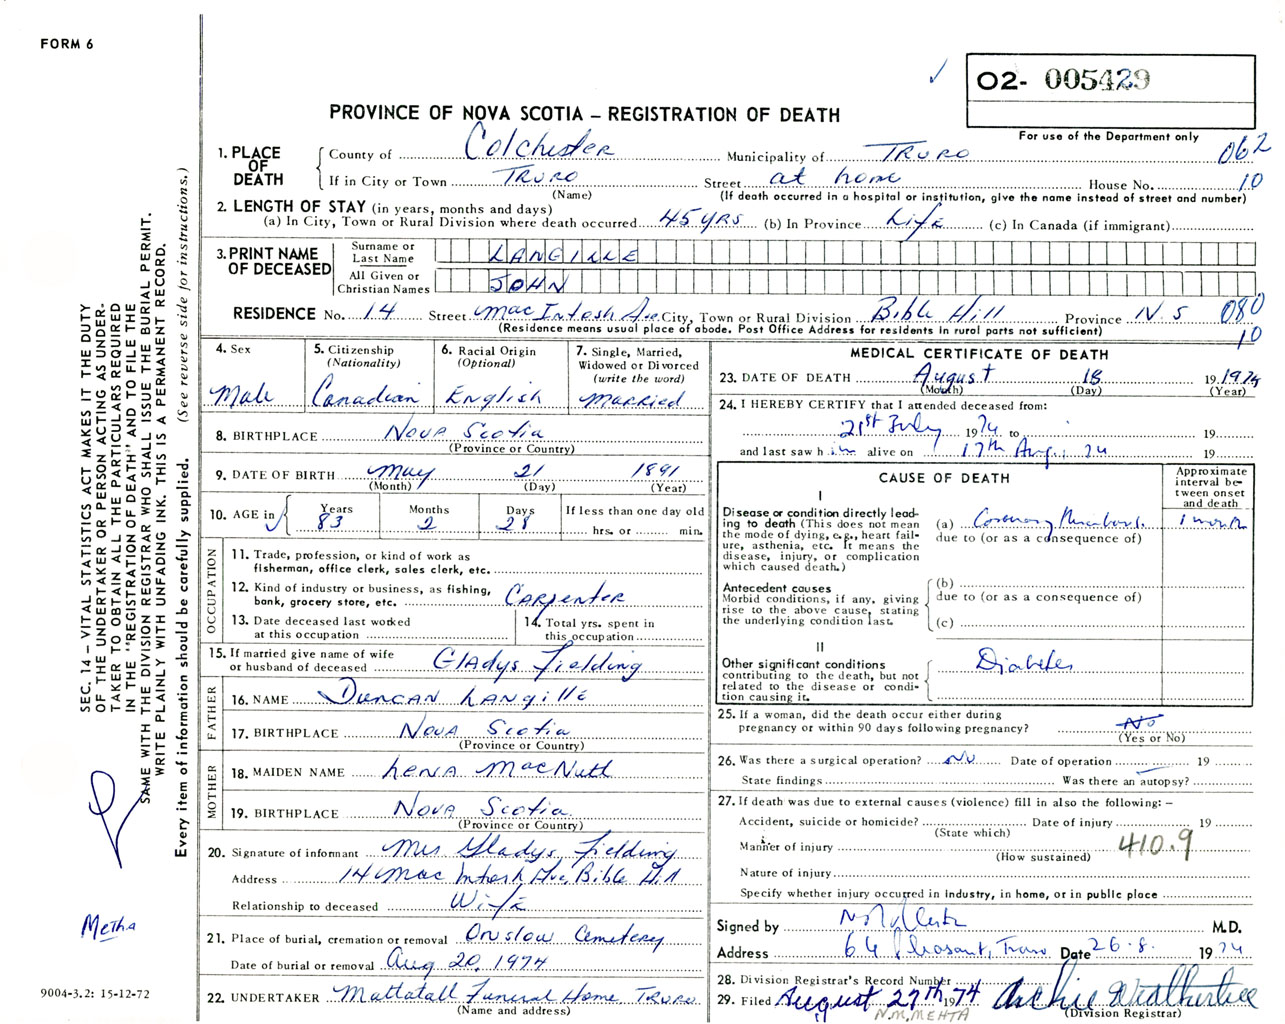 FORM 6
O2- 005429
For use of the Department only
PROVINCE OF NOVA SCOTIA – REGISTRATION OF DEATH
1. PLACE OF DEATH
County of Colchester Municipality of Truro 062
If in City or Town Truro Street at home House No. 10
(Name) (If death occurred in a hospital or institution, give the name instead of street and number)
2. LENGTH OF STAY (in years, months and days)
(a) In City, Town or Rural Division where death occurred 45 yrs (b) In Province Life (c) In Canada (if immigrant)
3. PRINT NAME OF DECEASED
Surname or Last Name LANGILLE
All Given or Christian Names JOHN
RESIDENCE No. 14 Street MacIntosh Ave City, Town or Rural Division Bible Hill Province N.S 080
(Residence means usual place of abode. Post Office Address for residents in rural parts not sufficient) 10
4. Sex
Male
5. Citizenship
(Nationality)
Canadian
6. Racial Origin
(Optional)
English
7. Single, Married,
Widowed or Divorced
(write the word)
Married
8. BIRTHPLACE Nova Scotia
(Province or Country)
9. DATE OF BIRTH May 21 1891
(Month) (Day) (Year)
10. AGE in Years 83 Months 2 Days 28 If less than one day old
hrs. or min.
OCCUPATION
11. Trade, profession, or kind of work as
fisherman, office clerk, sales clerk, etc.
12. Kind of industry or business, as fishing,
bank, grocery store, etc. Carpenter
13. Date deceased last worked
at this occupation
14. Total yrs. spent in
this occupation
15. If married give name of wife
or husband of deceased Gladys Fielding
FATHER
16. NAME Duncan Langille
17. BIRTHPLACE Nova Scotia
(Province or Country)
MOTHER
18. MAIDEN NAME Lena MacNutt
19. BIRTHPLACE Nova Scotia
(Province or Country)
20. Signature of informant Mrs Gladys Fielding
Address 14 MacIntosh Ave, Bible Hill
Relationship to deceased Wife
21. Place of burial, cremation or removal Onslow Cemetery
Date of burial or removal Aug 20, 1974
22. UNDERTAKER Mattatall Funeral Home Truro
(Name and address)
MEDICAL CERTIFICATE OF DEATH
23. DATE OF DEATH August 18 19 1974
(Month) (Day) (Year)
24. I HEREBY CERTIFY that I attended deceased from:
21st July 1974 to 19
and last saw him alive on 17th Aug, 74 19
CAUSE OF DEATH
Approximate
interval be-
tween onset
and death
I
Disease or condition directly lead-
ing to death (This does not mean
the mode of dying, e.g., heart fail-
ure, asthenia, etc. It means the
disease, injury, or complication
which caused death.)
(a) Coronary Thrombosis 1 month
due to (or as a consequence of)
Antecedent causes
Morbid conditions, if any, giving
rise to the above cause, stating
the underlying condition last.
(b)
due to (or as a consequence of)
(c)
II
Other significant conditions
contributing to the death, but not
related to the disease or condi-
tion causing it.
Diabetes
25. If a woman, did the death occur either during
pregnancy or within 90 days following pregnancy? No
(Yes or No)
26. Was there a surgical operation? No Date of operation 19
State findings Was there an autopsy?
27. If death was due to external causes (violence) fill in also the following: –
Accident, suicide or homicide? Date of injury 19
(State which)
Manner of injury 410.9
(How sustained)
Nature of injury
Specify whether injury occurred in industry, in home, or in public place
Signed by M.D.
Address 64 Pleasant, Truro Date 26.8. 1974
28. Division Registrar's Record Number
29. Filed August 27th 1974 Archie Weatherbee
N.M. MEHTA (Division Registrar)
SEC. 14 – VITAL STATISTICS ACT MAKES IT THE DUTY
OF THE UNDERTAKER OR PERSON ACTING AS UNDER-
TAKER TO OBTAIN ALL THE PARTICULARS REQUIRED
IN THE "REGISTRATION OF DEATH" AND TO FILE THE
SAME WITH THE DIVISION REGISTRAR WHO SHALL ISSUE THE BURIAL PERMIT.
WRITE PLAINLY WITH UNFADING INK. THIS IS A PERMANENT RECORD.
Every item of information should be carefully supplied. (See reverse side for instructions.)
Metha
9004-3.2: 15-12-72